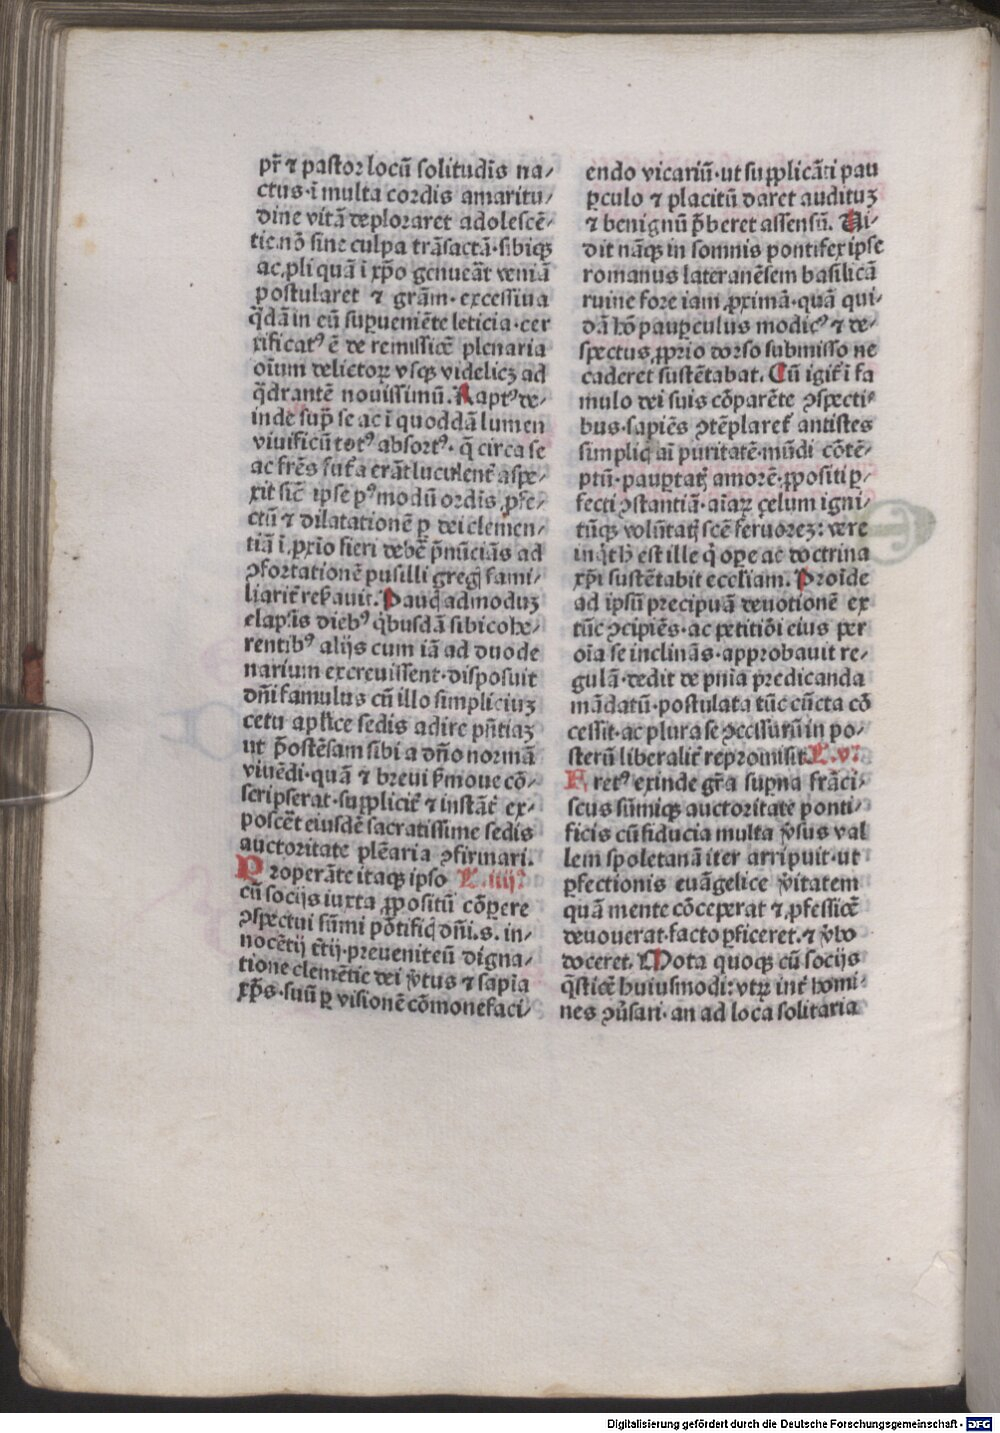 pr̄ ⁊ pastor locū solitudīs na/
ctus·ī multa cordis amaritu/
dine vitā deploraret adolescē-
tie nō sine culpa trāsactā·sibiqꝫ
ac ꝓli quā ī xp̄o genueāt veniā
postularet ⁊ grām·excessiua
q̄dā in eū suꝑueniēte leticia·cer
tificatꝰ ē de remissiōe plenaria
oīum delictoꝝ vsqꝫ videlicꝫ ad
q̄drantē nouissimū. Raptꝰ de/
inde sup̄ se ac ī quoddā lumen
viuificū totꝰ absortꝰ· q̄ circa se
ac frēs fut̄a erāt luculent̄ aspe/
xit sic̄ ipse pꝰmodū ordīs ꝓfe/
ctū ⁊ dilatationē ꝑ dei clemen/
tiā ī ꝓxio fieri debē p̄nūciās ad
ꝯfortationē pusilli gregꝭ fami/
liarit̄ reẜauit. Paucꝭ admoduꝫ
elapsis diebꝰ q̄busdā sibi cohe/
rentibꝰ alijs cum iā ad duode
narium excreuissent·disposuit
dn̄i famulus cū illo simpliciuꝫ
cetu aplīce sedis adire p̄ntiaꝫ
ut p̄ostēsam sibi a dn̄o normā
viuēdi·quā ⁊ breui ẜmoue cō/
scripserat·suꝓlicit̄ ⁊ instāt̄ ex/
poscēt eiusdē sacratissime sedis
auctoritate plēaria ꝯfirmari.
Properāte itaqꝫ ipso L. iiijꝰ
cū socijs iuxta ꝓpositū cōꝑere
ꝯspectui sūmi pōtificꝭ dn̄i.s. in/
nocētij t̄tij·preuenit eū digna/
tione clemētie dei v̄tus ⁊ sapīa
xp̄s·suū ꝑ visionē cōmonefaci/
endo vicariū·ut suꝓplicāti pau
ꝑculo ⁊ placitū daret audituꝫ
⁊ benignū p̄beret assensū. Ui/
dit nāqꝫ in somnis pontifex ipse
romanus lateranēsem basilicā
ruine fore iam ꝓximā·quā qui/
dā hō pauꝑculus modicꝰ ⁊ de/
spectus ꝓprio dorso submisso ne
caderet sustētabat. Cū igit̄ ī fa
mulo dei suis cōparēte ꝯspecti/
bus·sapiēs ꝯtēplaret̄ antistes
simplicꝭ aī puritatē·mūdi cōtē/
ptū·pauꝑtatꝭ amorē·ꝓpositi ꝑ/
fecti ꝯstantiā·aīaꝝ çelum igni/
tūqꝫ volūtatꝭ scē feruoreꝫ: vere
inq̄t hic̄ est ille q̄ oꝑe ac doctrina
xp̄i sustētabit eccl̄iam. Proīde
ad ipsū precipuā deuotionē ex
tūc ꝯcipiēs·ac petitiōi eius per
oīa se inclinās·approbauit re/
gulā·dedit de pnīa predicanda
mādatū·postulata tūc cūcta cō
cessit·ac plura se ꝯcessurū in po/
sterū liberalit̄ repromisit. L. vꝰ
Fretꝰ exinde grā suꝑna frāci/
scus sūmiqꝫ auctoritate ponti/
ficis cū fiducia multa v̄sus val
lem spoletanā iter arripuit·ut
ꝑfectionis euāgelice v̄itatem
quā mente cōceperat ⁊ ꝓfessiōe
deuouerat·facto ꝑficeret·⁊ v̄bo
doceret. Mota quoqꝫ cū socijs
q̄stiōe huiusmodi: vtꝝ int̄ homi/
nes ꝯūsari· an ad loca solitaria
Digitalisierung gefördert durch die Deutsche Forschungsgemeinschaft · DFG